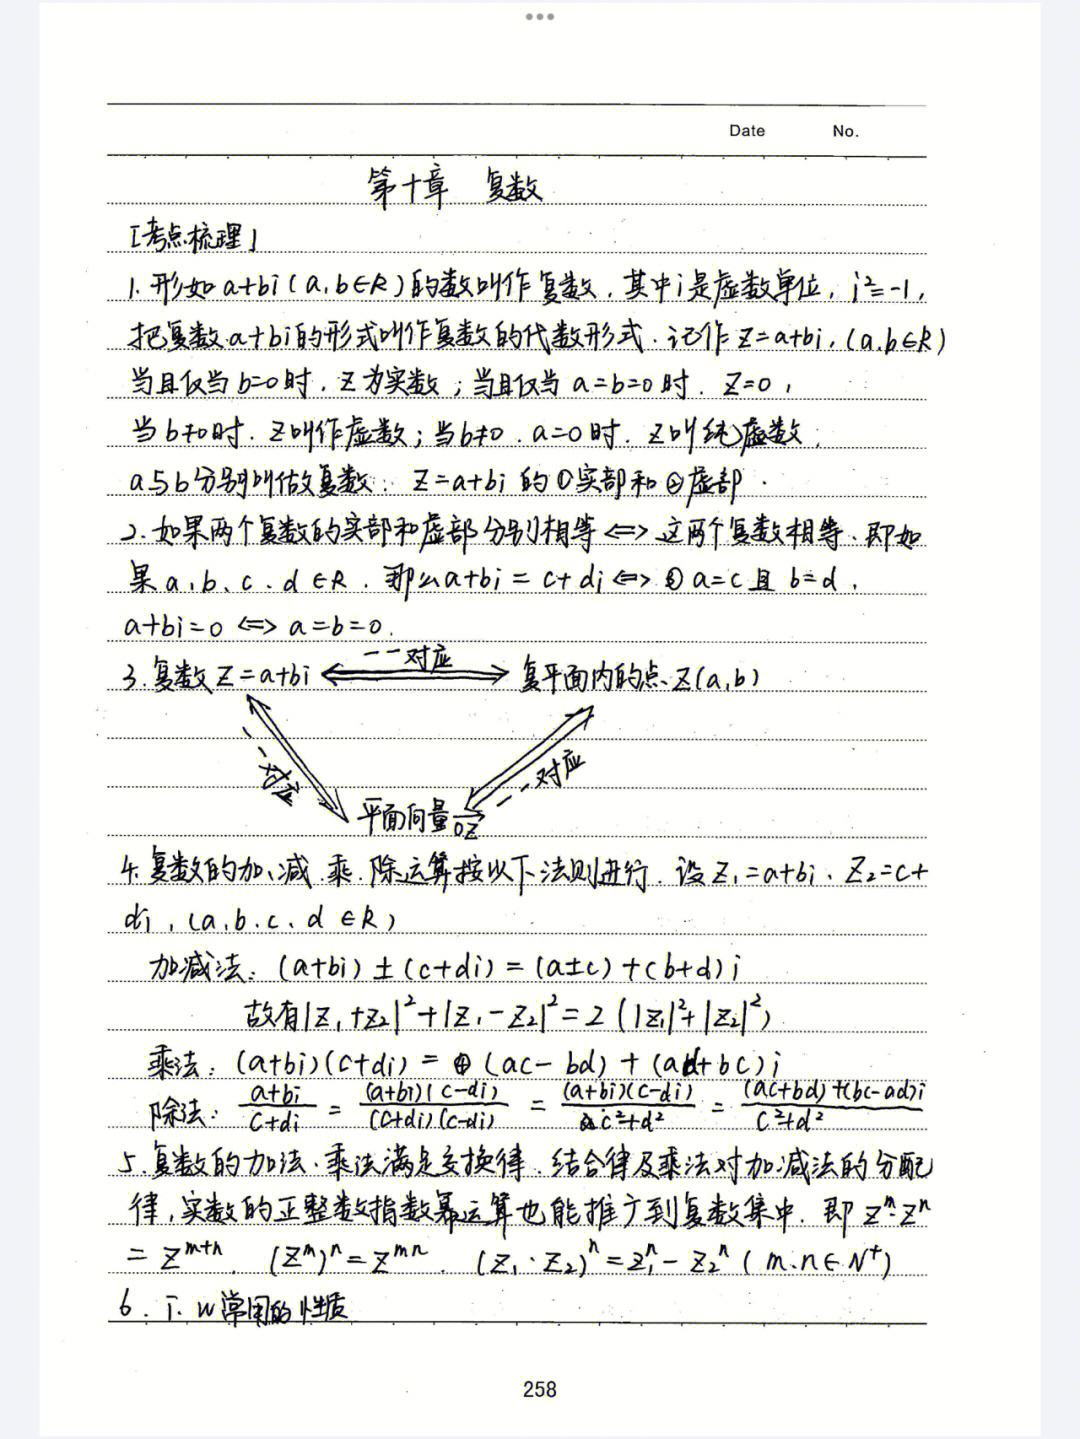 Date No.
第十章 复数
[考点梳理]
1. 形如a+bi(a,b∈R)的数叫作复数,其中i是虚数单位,i²=-1,
把复数a+bi的形式叫作复数的代数形式.记作Z=a+bi,(a,b∈R)
当且仅当b=0时,Z为实数;当且仅当a=b=0时.Z=0,
当b≠0时.Z叫作虚数;当b≠0.a=0时.Z叫纯虚数;
a与b分别叫做复数:Z=a+bi的①实部和②虚部.
2.如果两个复数的实部和虚部分别相等⇔这两个复数相等、即如
果a、b、c、d∈R.那么a+bi=c+di⇔①a=c且b=d,
a+bi=0⇔a=b=0.
一一对应
3.复数Z=a+bi⇔复平面内的点Z(a,b)
一一对应 一一对应
平面向量OZ
4.复数的加、减.乘.除运算按以下法则进行.设Z₁=a+bi、Z₂=c+
di,(a,b.c、d∈R)
加减法:(a+bi)±(c+di)=(a±c)+(b+d)i
故有|Z₁+Z₂|²+|Z₁-Z₂|²=2(|Z₁|²+|Z₂|²)
乘法:(a+bi)(c+di)=(ac-bd)+(ad+bc)i
除法:(a+bi)/(c+di)=(a+bi)(c-di)/(c+di)(c-di)=(a+bi)(c-di)/c²+d²=(ac+bd)+(bc-ad)i/c²+d²
5.复数的加法.乘法满足交换律.结合律及乘法对加减法的分配
律,实数的正整数指数幂运算也能推广到复数集中.即Zᵐ·Zⁿ
=Zᵐ⁺ⁿ.(Zᵐ)ⁿ=Zᵐⁿ.(Z₁·Z₂)ⁿ=Z₁ⁿ-Z₂ⁿ(m.n∈N⁺)
6.i.w常用的性质
258